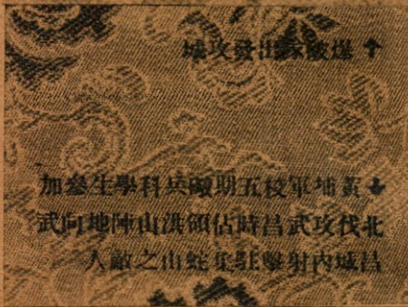 ↑ 爆破隊出發攻城
↓ 黃埔軍校五期礮兵科學生參加
北伐攻武昌時佔領洪山陣地向武
昌城內射擊駐集蛇山之敵人